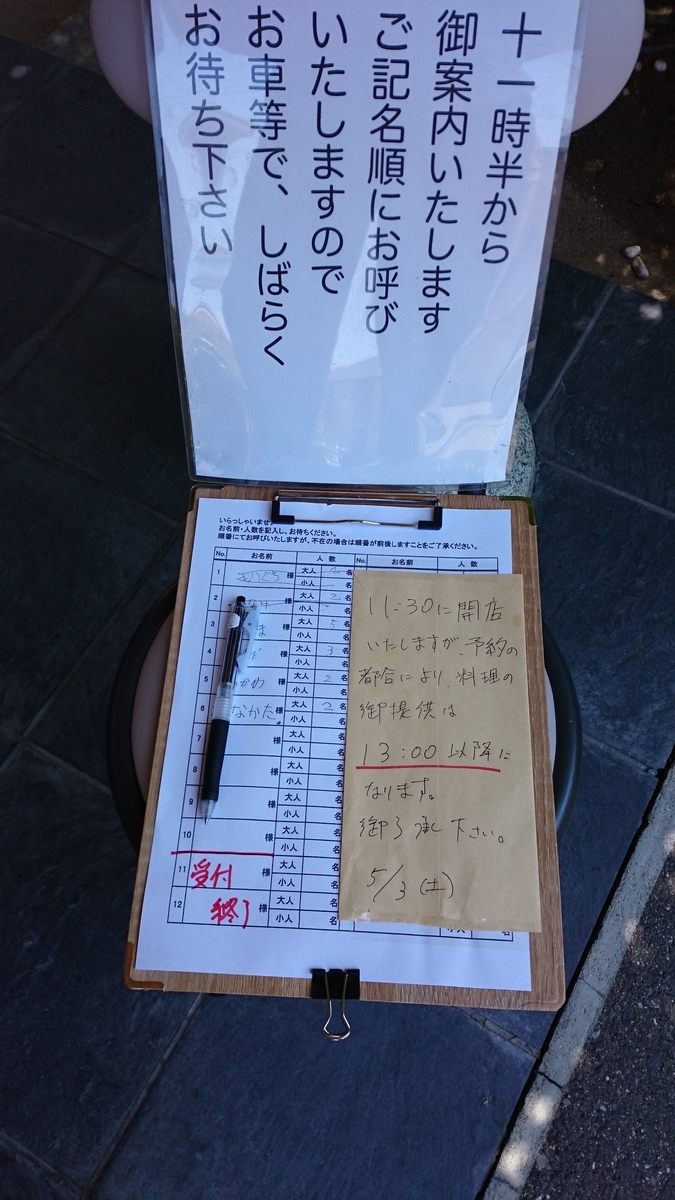 十一時半から
御案内いたします
ご記名順にお呼び
いたしますので
お車等で、しばらく
お待ち下さい
いらっしゃいませ
お名前・人数を記入し、お待ちください。
順番にてお呼びいたしますが、不在の場合は順番が前後しますことをご了承ください。
No. お名前 人数 No. お名前 人数
1 様 大人 名
小人 名
2 様 大人 2 名
小人 名
3 ま 様 大人 5 名
小人 名
4 だ 様 大人 3 名
小人 名
5 様 大人 2 名
小人 名
6 なかた 様 大人 2 名
小人 名
7 様 大人 名
小人 名
8 様 大人 名
小人 名
9 様 大人 名
小人 名
10 様 大人 名
小人 名
11 受付 様 大人 名
小人 名
12 終了 様 大人 名
小人 名
11:30に開店
いたしますが、予約の
都合により、料理の
御提供は
13:00以降に
なります。
御了承下さい。
5/3(土)